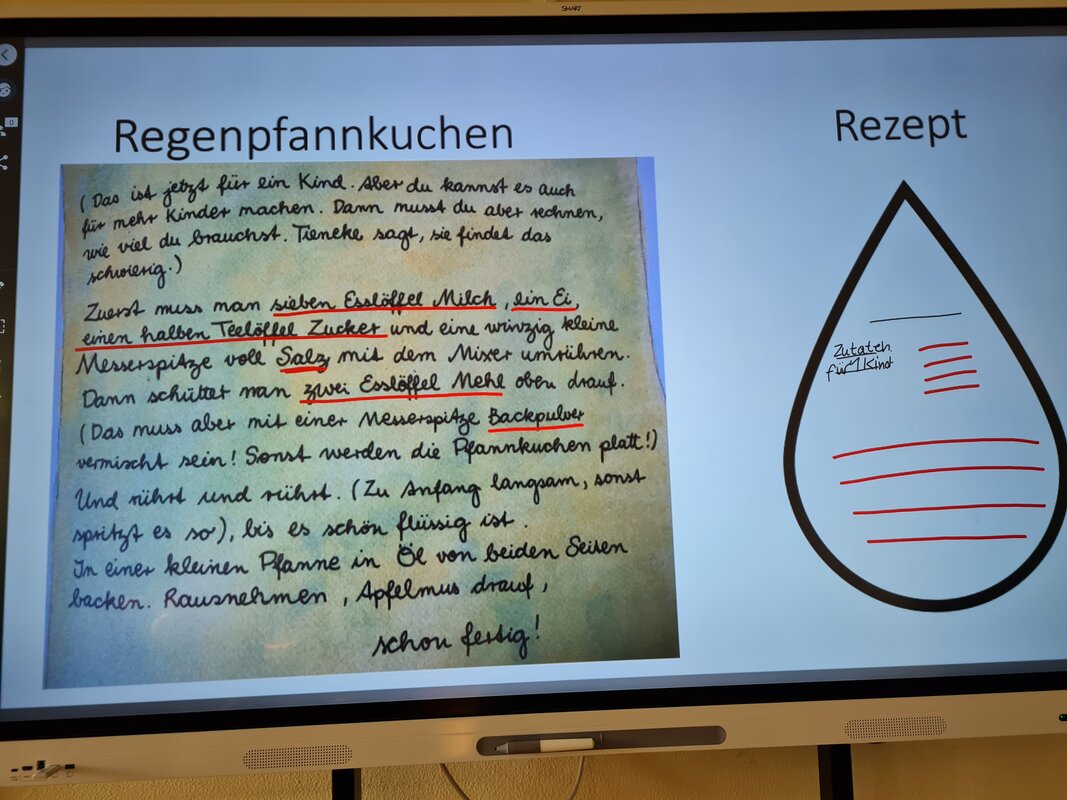 SMART
Regenpfannkuchen
(Das ist jetzt für ein Kind. Aber du kannst es auch
für mehr Kinder machen. Dann musst du aber rechnen,
wie viel du brauchst. Tieneke sagt, sie findet das
schwierig.)
Zuerst muss man sieben Esslöffel Milch, ein Ei,
einen halben Teelöffel Zucker und eine winzig kleine
Messerspitze voll Salz mit dem Mixer umrühren.
Dann schüttet man zwei Esslöffel Mehl oben drauf.
(Das muss aber mit einer Messerspitze Backpulver
vermischt sein! Sonst werden die Pfannkuchen platt!)
Und rührt und rührt. (Zu Anfang langsam, sonst
spritzt es so), bis es schön flüssig ist.
In einer kleinen Pfanne in Öl von beiden Seiten
backen. Rausnehmen, Apfelmus drauf,
schon fertig!
Rezept
Zutaten
für 1 Kind
0